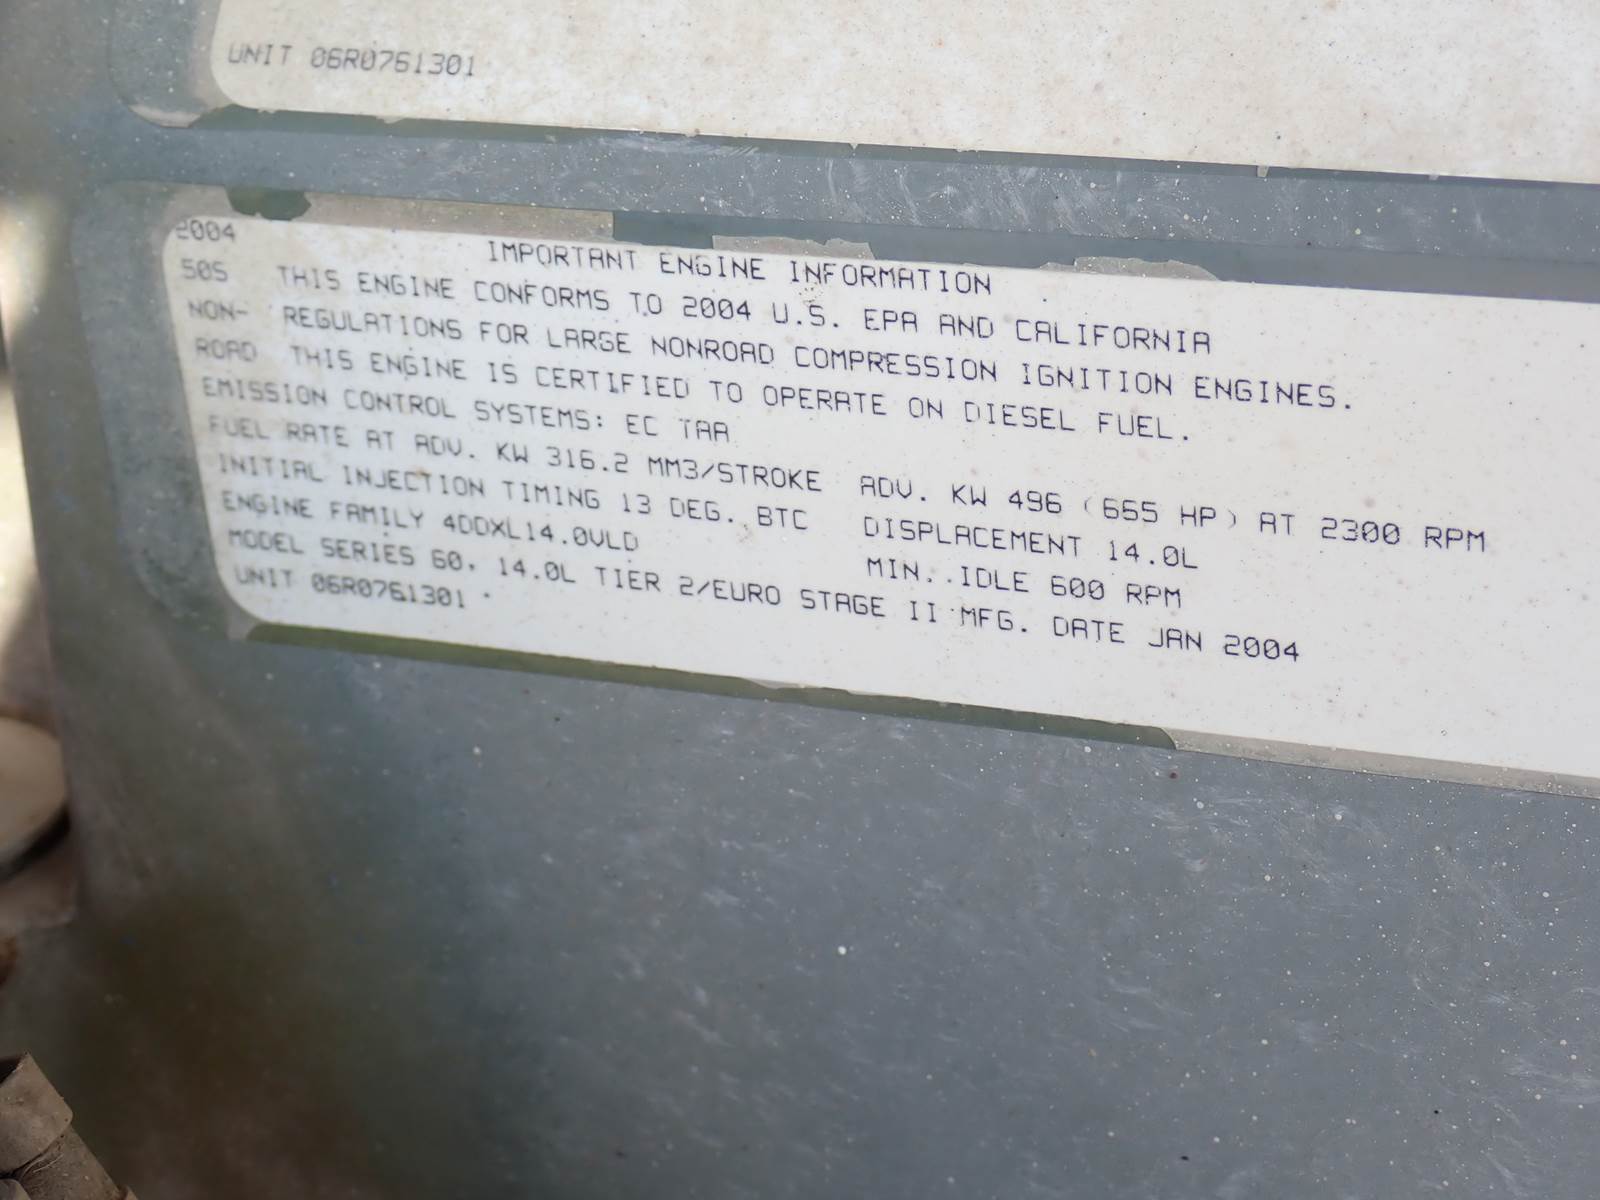 UNIT 06R0761301
2004
IMPORTANT ENGINE INFORMATION
50S THIS ENGINE CONFORMS TO 2004 U.S. EPA AND CALIFORNIA
NON- REGULATIONS FOR LARGE NONROAD COMPRESSION IGNITION ENGINES.
ROAD THIS ENGINE IS CERTIFIED TO OPERATE ON DIESEL FUEL.
EMISSION CONTROL SYSTEMS: EC TAA
FUEL RATE AT ADV. KW 316.2 MM3/STROKE ADV. KW 496 (665 HP) AT 2300 RPM
INITIAL INJECTION TIMING 13 DEG. BTC DISPLACEMENT 14.0L
ENGINE FAMILY 4DDXL14.0VLD MIN. IDLE 600 RPM
MODEL SERIES 60, 14.0L TIER 2/EURO STAGE II MFG. DATE JAN 2004
UNIT 06R0761301